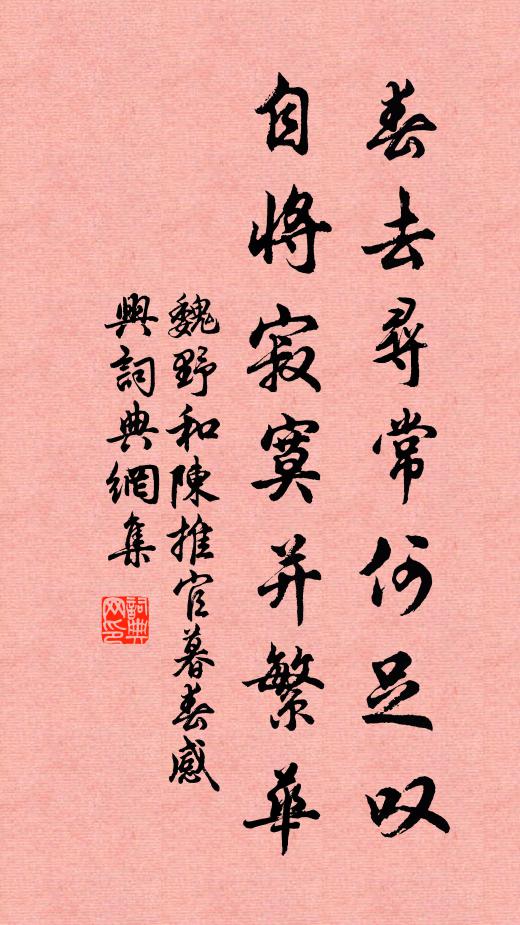 春去尋常何足叹
自將寂寞并繁華
魏野和陳推官暮春感
興詞典網集
詞典
网印